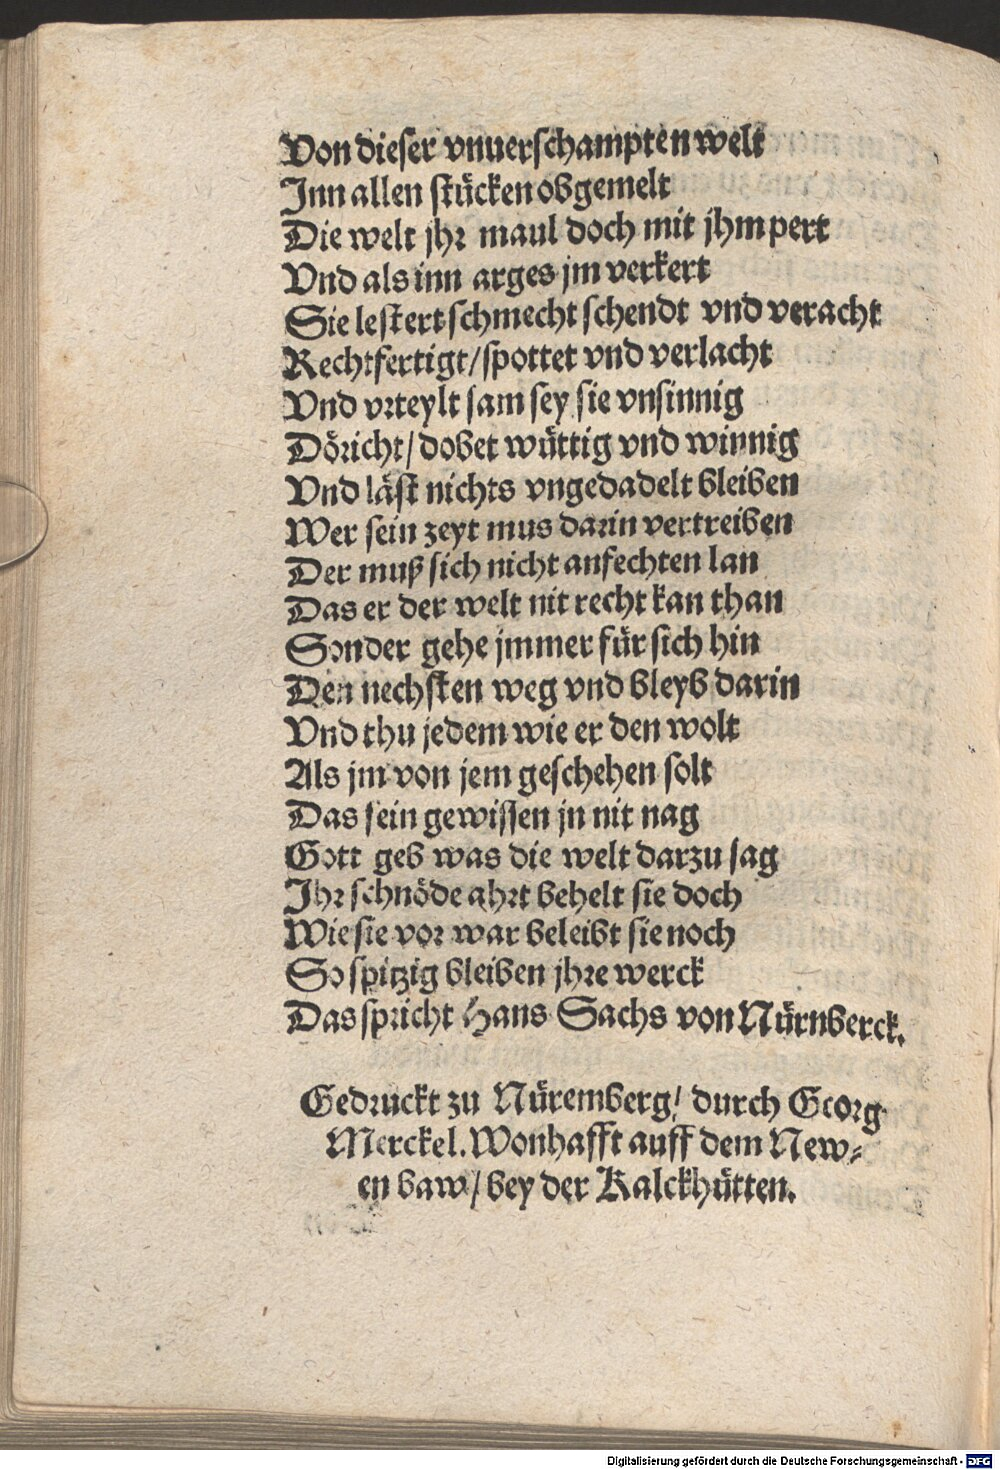 Von dieser vnuerschampten welt
Inn allen stücken obgemelt
Die welt jhr maul doch mit jhm pert
Vnd als inn arges jm verkert
Sie lestert schmecht schendt vnd veracht
Rechtfertigt/ spottet vnd verlacht
Vnd vrteylt sam sey sie vnsinnig
Döricht/ dobet wüttig vnd winnig
Vnd läst nichts vngedadelt bleiben
Wer sein zeyt mus darin vertreiben
Der muß sich nicht anfechten lan
Das er der welt nit recht kan than
Sonder gehe jmmer für sich hin
Den nechsten weg vnd bleyb darin
Vnd thu jedem wie er den wolt
Als jm von jem geschehen solt
Das sein gewissen jn nit nag
Gott geb was die welt darzu sag
Ihr schnöde ahrt behelt sie doch
Wie sie vor war beleibt sie noch
So spitzig bleiben jhre werck
Das spricht Hans Sachs von Nürnberck.
Gedruckt zu Nüremberg/ durch Georg
Merckel. Wonhafft auff dem New⸗
en baw/ bey der Kalckhütten.
Digitalisierung gefördert durch die Deutsche Forschungsgemeinschaft - DFG